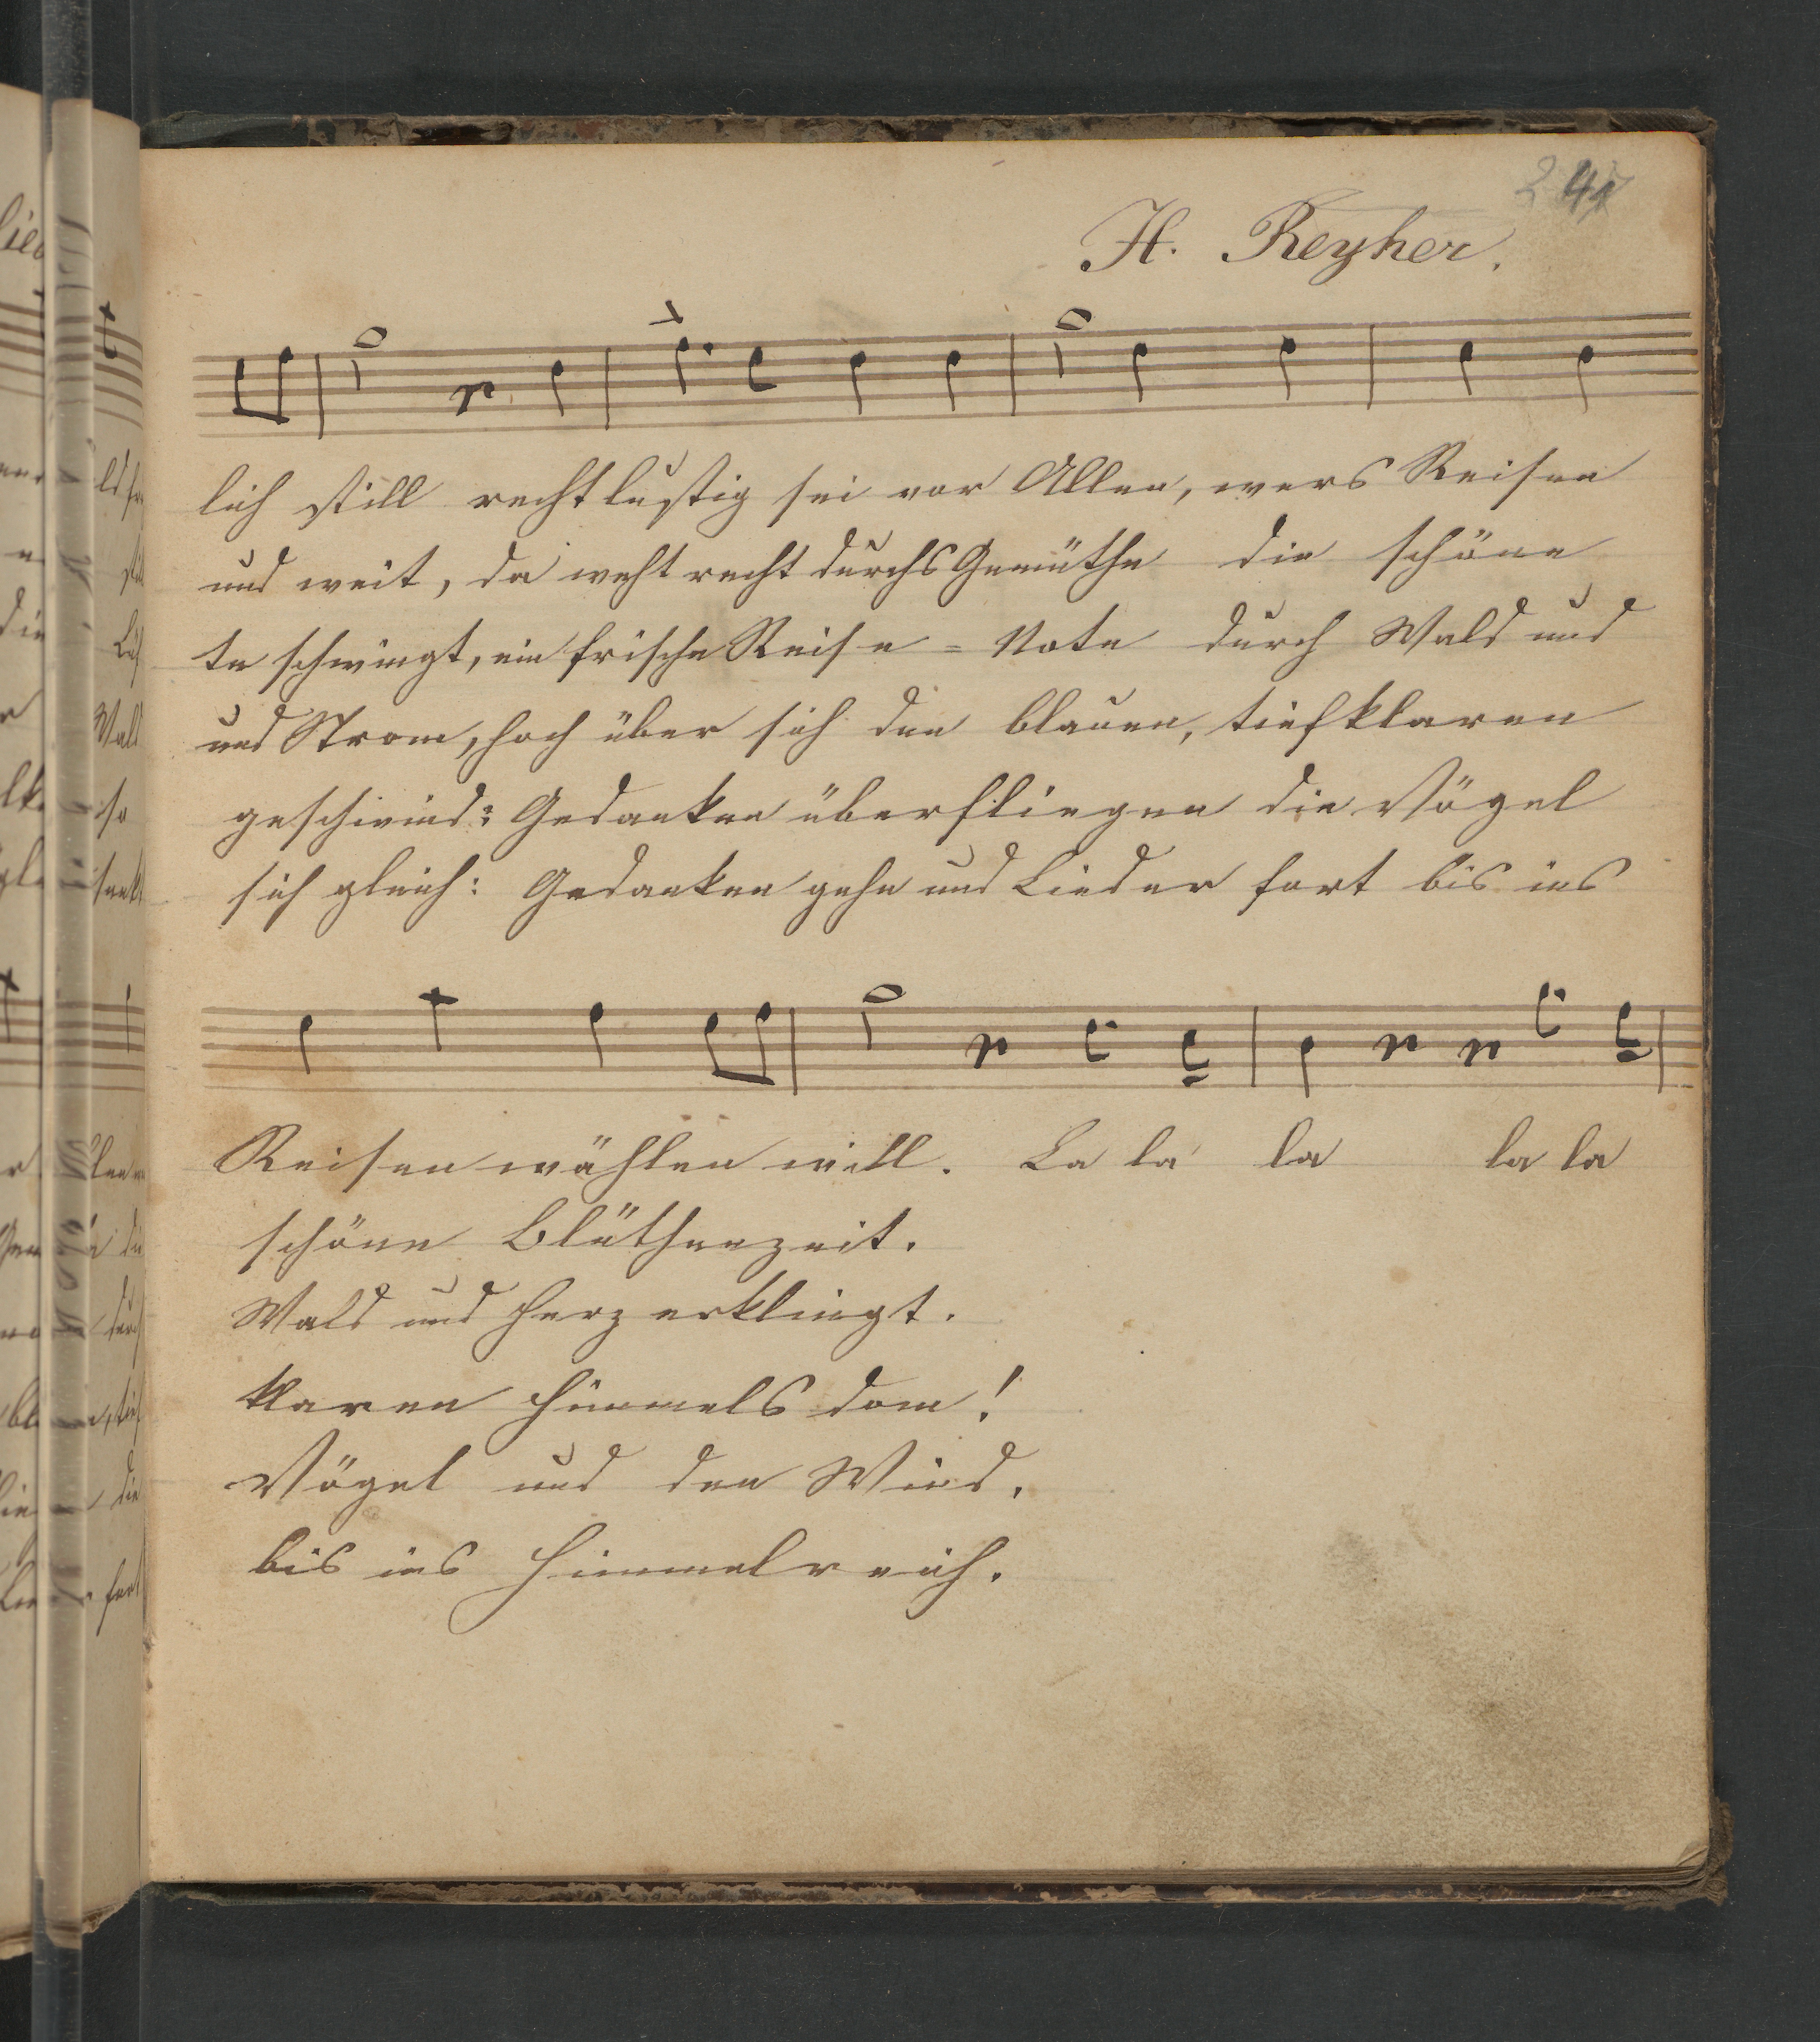 241
H. Reyher.
lich still recht lustig sei vor Allen, wers Reisen
und weit, da weht recht durchs Gemüthe die schöne
te schwingt, ein frische Reise = Note durch Wald und
und Strom, hoch über sich den blauen, tiefklaren
geschwind: Gedanken überfliegen die Vögel
sich gleich: Gedanken gehn und Lieder fort bis ins
Reisen wählen will. La la la la la
schöne Blüthenzeit.
Wald und Herz erklingt.
klaren Himmels dom!
Vögel und den Wind.
bis ins Himmelreich.